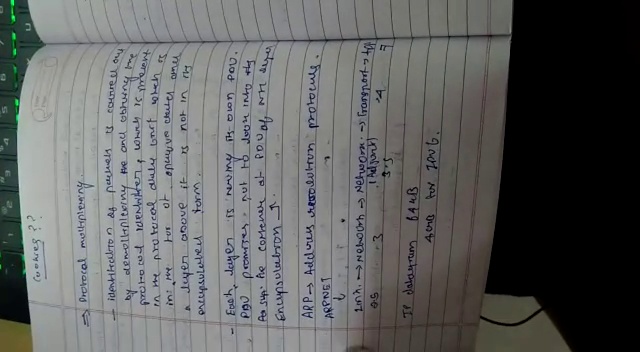 Cookies ??
⇒ Protocol multiplexing.
– identification of packets is carried out
by demultiplexing and obtaining the
protocol identifier, which is present
in the protocol data unit which is
in the form of opaque data and
a layer above it is not in its
encapsulated form.
– Each layer is having its own PDU.
PDU promises not to look into the
content of PDU of nth layer
Encapsulation
ARP → Address resolution protocols.
ARPNET
Link → Network → Network → Transport →
(Adjunct)
2.5 3 3.5 4 7
IP datagram 64 KB
4GB for IPv6.